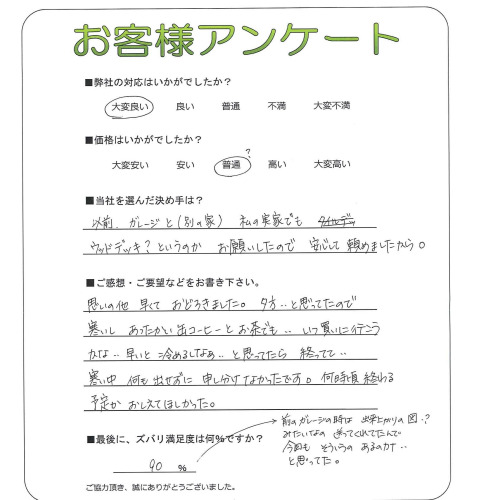 お客様アンケート
■弊社の対応はいかがでしたか？
大変良い 良い 普通 不満 大変不満
■価格はいかがでしたか？
?
大変安い 安い 普通 高い 大変高い
■当社を選んだ決め手は？
以前. ガレージと(別の家) 私の実家でも
ウッドデッキ？というのか お願いしたので 安心して 頼めましたから。
■ご感想・ご要望などをお書き下さい。
思いの他 早くて おどろきました。夕方..と思ってたので
寒いし あったかい缶コーヒーとお茶でも.. いつ買いに行こう
かな.. 早いと 冷めるしなぁ.. と思ってたら 終ってて..
寒い中 何も出せずに 申し分けなかったです。何時頃 終わる
予定か おしえてほしかった。
■最後に、ズバリ満足度は何%ですか？
90 %
前のガレージの時は 出来上がりの図.?
みたいなの 送ってくれてたんで
今回も そういうの あるのか?..
と思ってた。
ご協力頂き、誠にありがとうございました。